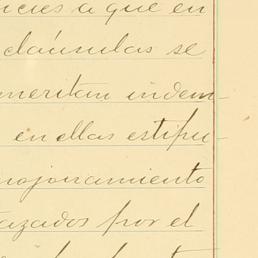 a que en
cláusulas se
ameritan indem-
en ellas estipu-
mojonamiento
azados por el